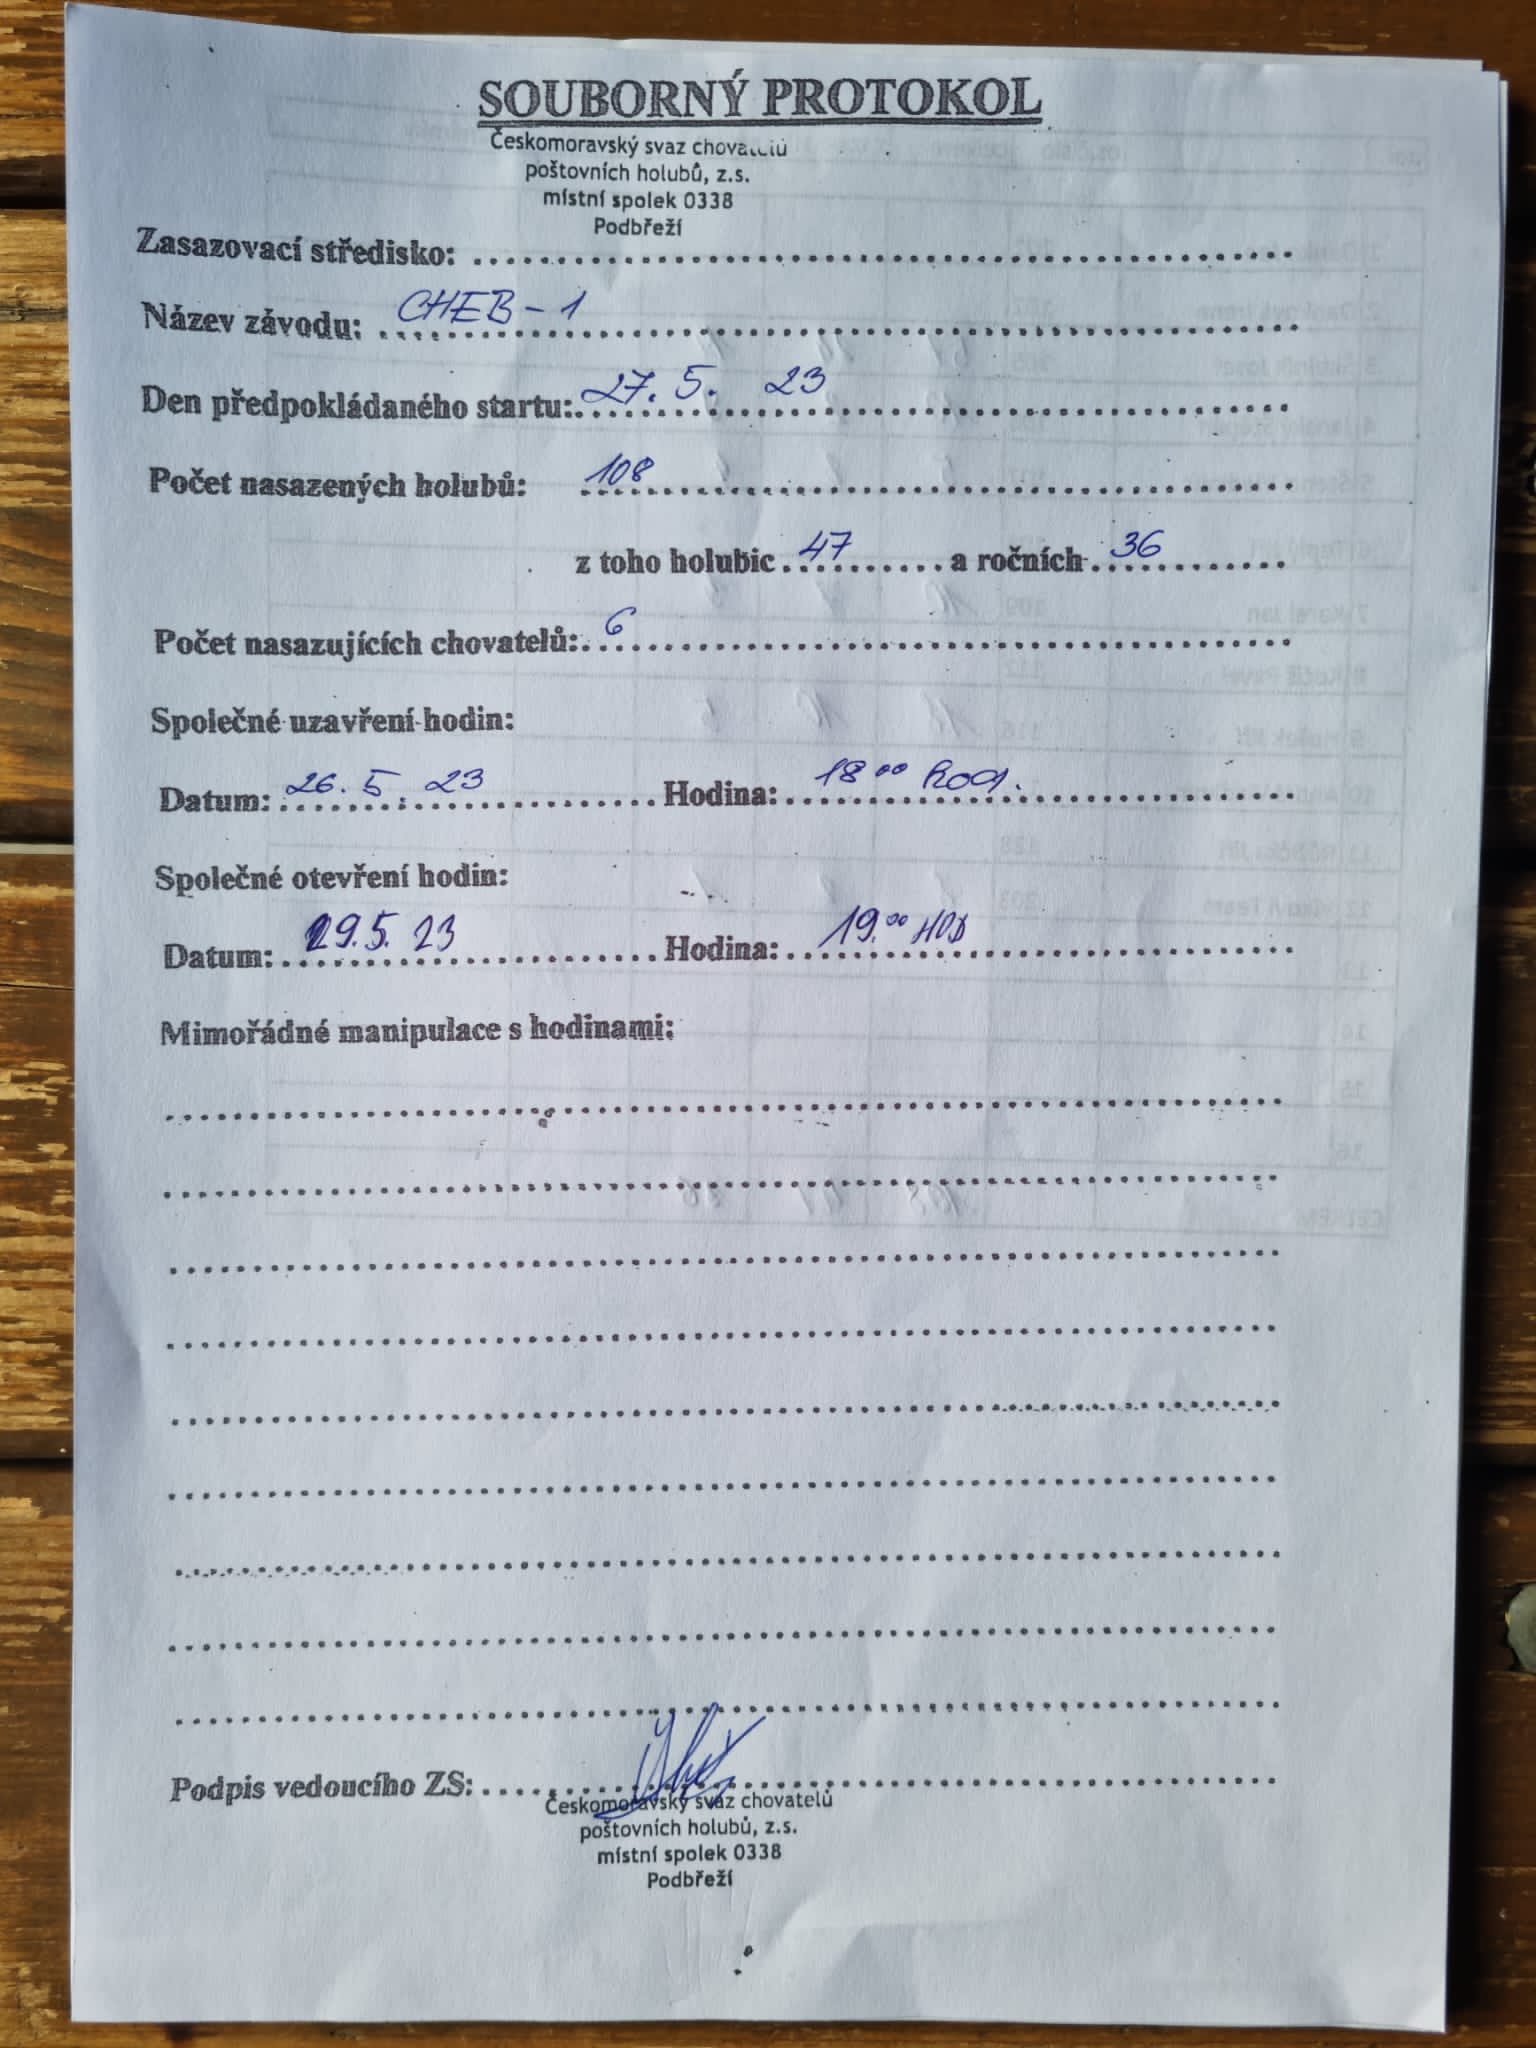 SOUBORNÝ PROTOKOL
Českomoravský svaz chovatelů
poštovních holubů, z.s.
místní spolek 0338
Podbřeží
Zasazovací středisko:
Název závodu: CHEB - 1
Den předpokládaného startu: 27. 5. 23
Počet nasazených holubů: 108
z toho holubic 47 a ročních 36
Počet nasazujících chovatelů: 6
Společné uzavření hodin:
Datum: 26. 5. 23 Hodina: 18 00 hod.
Společné otevření hodin:
Datum: 29.5. 23 Hodina: 19.00 HOD
Mimořádné manipulace s hodinami:
Podpis vedoucího ZS:
Českomoravský svaz chovatelů
poštovních holubů, z.s.
místní spolek 0338
Podbřeží